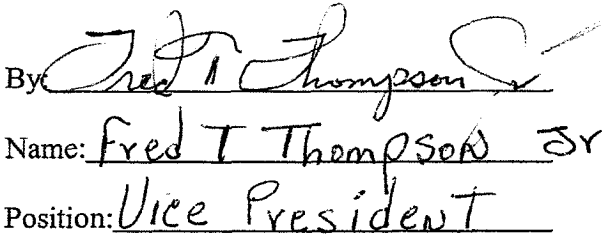 By: Fred T Thompson Jr
Name: Fred T Thompson Jr
Position: Vice President